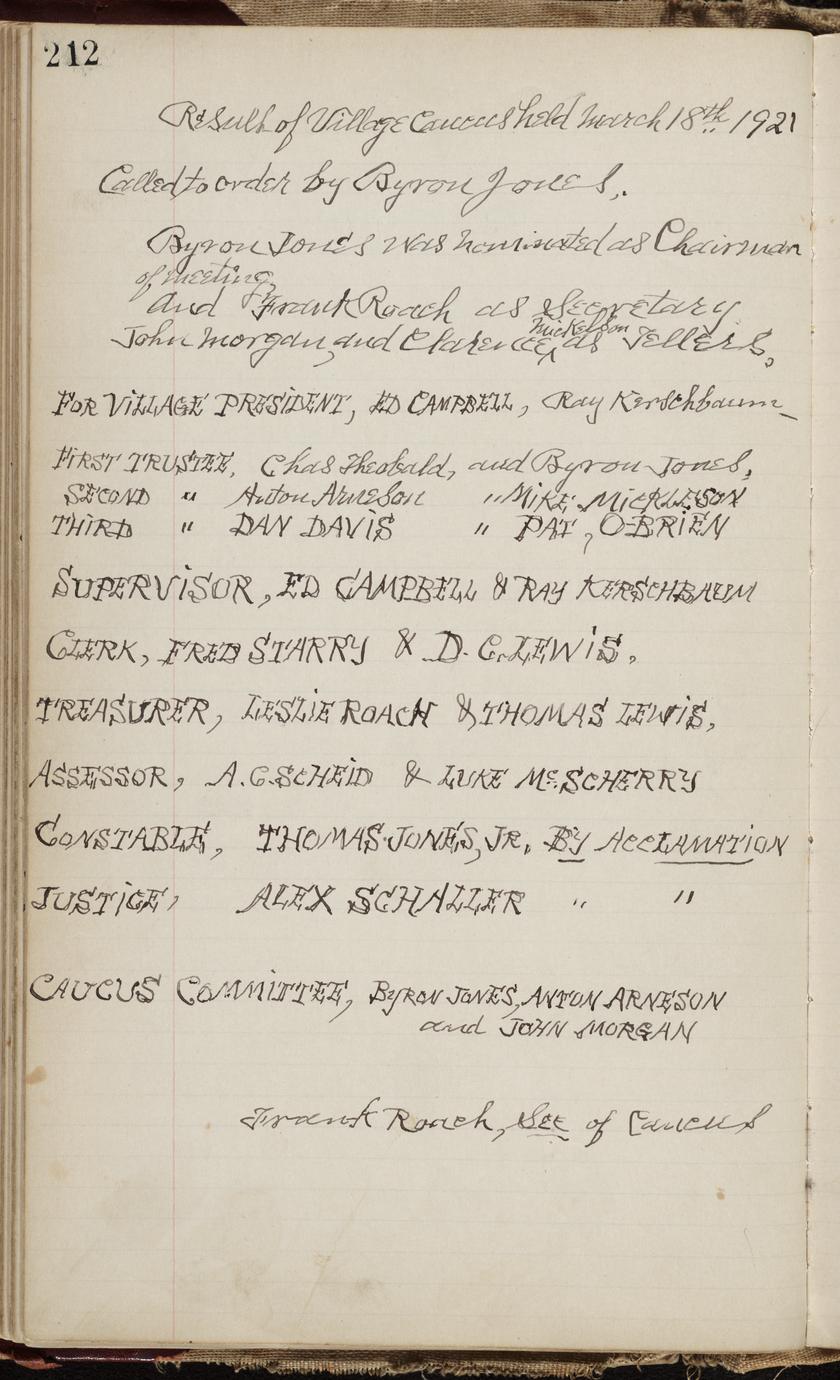 212
Result of Village Caucus held March 18th 1921
Called to order by Byron Jones,.
Byron Jones was nominated as Chairman
of meeting,
and Frank Roach as Secretary
Mickelson
John Morgan, and Clarence, ^ as Tellers,
FOR VILLAGE PRESIDENT, ED CAMPBELL, Ray Kerschbaum_
FIRST TRUSTEE, Chas Theobald, and Byron Jones,
SECOND " Anton Arneson " MIKE MICKLESON
THIRD " DAN DAVIS " PAT, O-BRIEN
SUPERVISOR, ED CAMPBELL & RAY KERSCHBAUM
CLERK, FRED STARRY & D. C. LEWIS,
TREASURER, LESLIE ROACH & THOMAS LEWIS,
ASSESSOR, A. C. SCHEID & LUKE Mc. SCHERRY
CONSTABLE, THOMAS JONES, JR. BY ACCLAMATION
JUSTICE, ALEX SCHALLER " "
CAUCUS COMMITTEE, BYRON JONES, ANTON ARNESON
and JOHN MORGAN
Frank Roach, Sec of Caucus